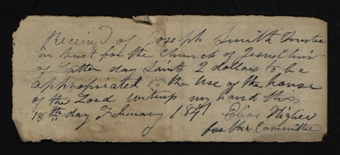 Received of Joseph Smith Trustee
in trust for the Church of Jesus Chris
of Latter day Saints 2 dollars to be
appropriated to the use of the house
of the Lord witness my hand this
18th day January 1841 Elias Higbee
for the Committee